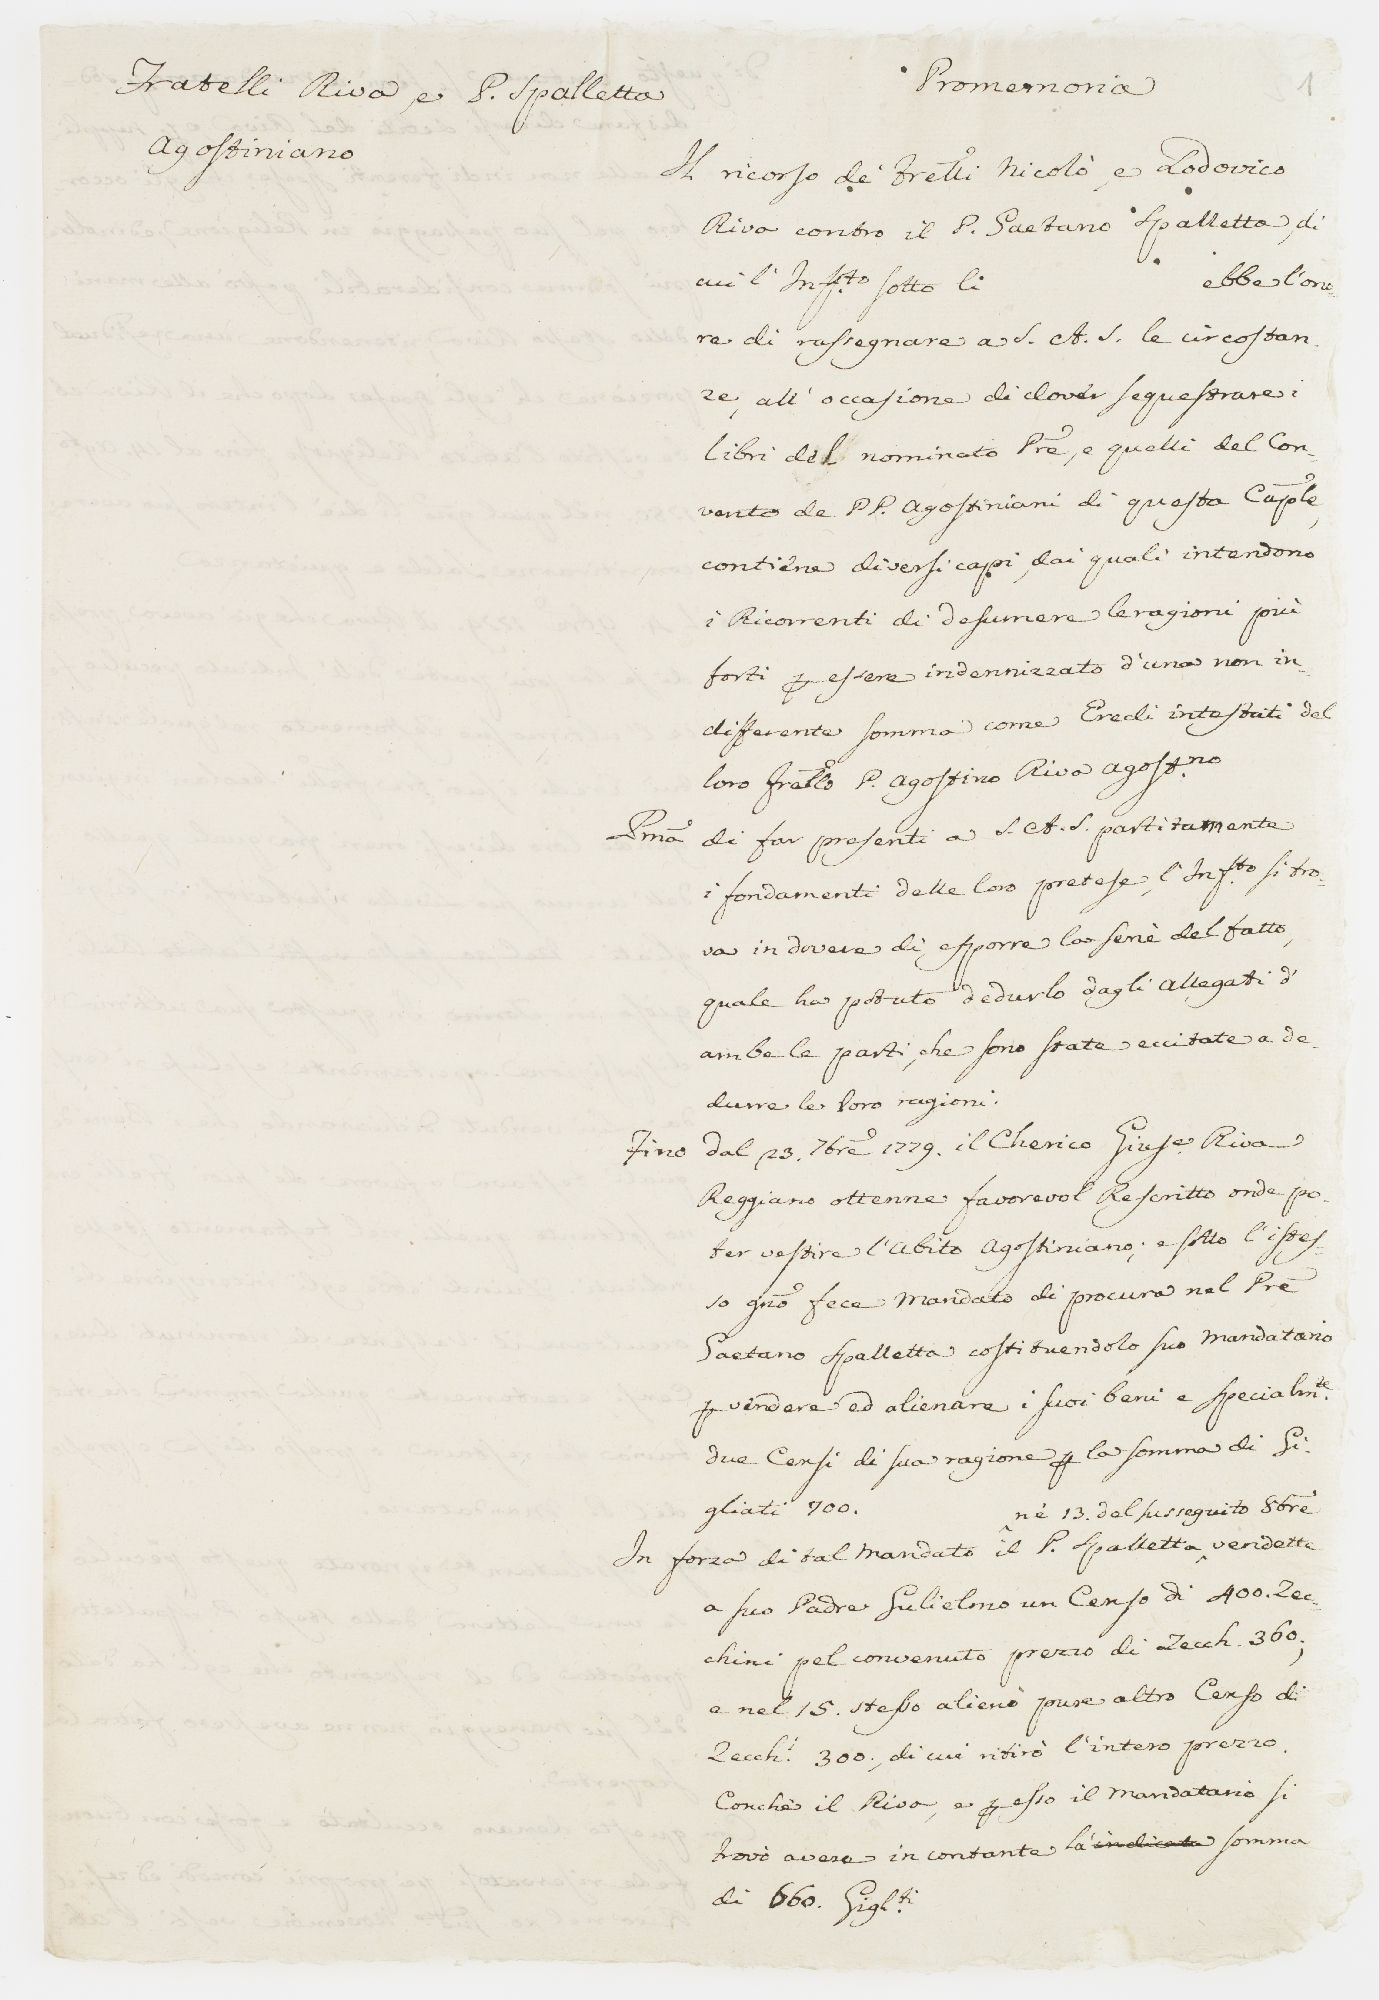 Fratelli Riva, e P. Spalletta
Agostiniano
Promemoria
1
Il ricorso de' Frelli Nicolò, e Lodovico
Riva contro il P. Gaetano Spalletta, di
cui l'Infto sotto li ebbe l'ono-
re di rassegnare a S. A. S. le circostan-
ze, all'occasione di dover sequestrare i
libri del nominato Pre, e quelli del Con-
vento de PP. Agostiniani di questa Caple,
contiene diversi capi, dai quali intendono
i Ricorrenti di desumere le ragioni più
forti p essere indennizzato d'una non in-
differente somma come Eredi intestati del
loro Frello P. Agostino Riva Agost.no
Pma di far presenti a S. A. S. partitamente
i fondamenti delle loro pretese, l'Inf.to si tro-
va in dovere di esporre la serie del fatto,
quale ha potuto dedurlo dagli allegati d'
ambe le parti, che sono state eccitate a de-
durre le loro ragioni.
Fino dal 23. 7bre 1779. il Cherico Giuse. Riva
Reggiano ottenne favorevol Rescritto onde po-
ter vestire l'Abito Agostiniano; e sotto l'istes-
so gno fece Mandato di procura nel Pre
Gaetano Spalletta costituendolo suo Mandatario
p vendere ed alienare i suoi beni e specialm.te
due Censi di sua ragione p la somma di Gi-
gliati 700.
né 13. del susseguito 8bre
In forza di tal Mandato il P. Spalletta vendette
a suo Padre Gulielmo un Censo di 400. Zec-
chini pel convenuto prezzo di Zecch. 360;
e nel 15. stesso alienò pure altro Censo di
Zecch.i 300., di cui ritirò l'intero prezzo.
Conchè il Riva, e p esso il Mandatario si
trovò avere in contante la indicata somma
di 660. Gigl.ti